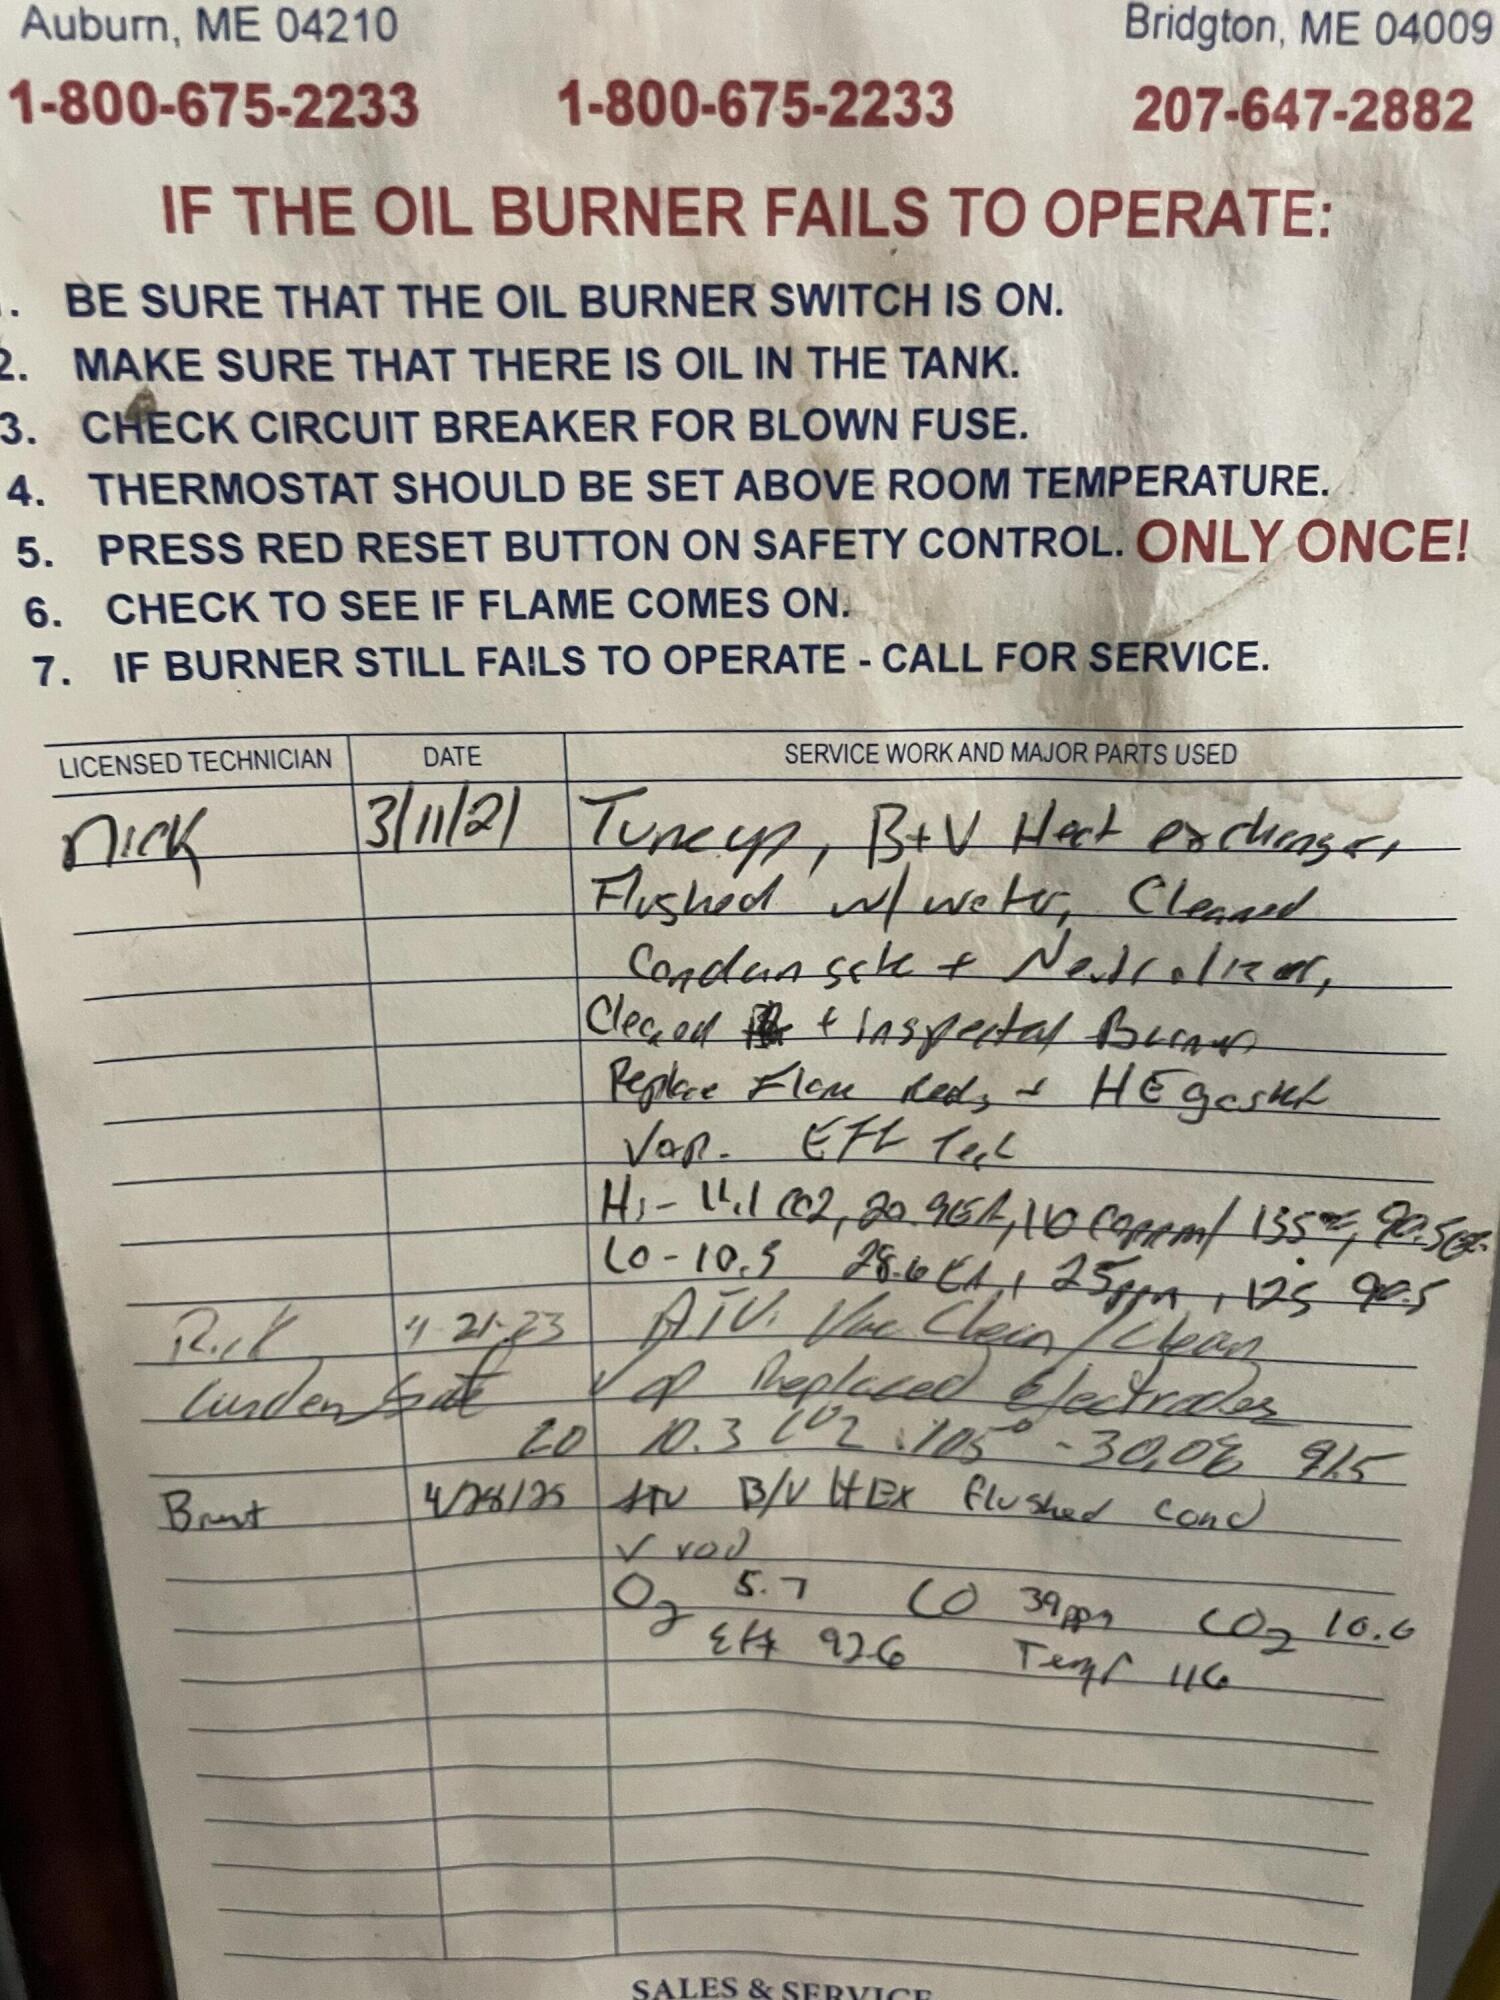 Auburn, ME 04210 Bridgton, ME 04009
1-800-675-2233 1-800-675-2233 207-647-2882
IF THE OIL BURNER FAILS TO OPERATE:
. BE SURE THAT THE OIL BURNER SWITCH IS ON.
2. MAKE SURE THAT THERE IS OIL IN THE TANK.
3. CHECK CIRCUIT BREAKER FOR BLOWN FUSE.
4. THERMOSTAT SHOULD BE SET ABOVE ROOM TEMPERATURE.
5. PRESS RED RESET BUTTON ON SAFETY CONTROL. ONLY ONCE!
6. CHECK TO SEE IF FLAME COMES ON.
7. IF BURNER STILL FAILS TO OPERATE - CALL FOR SERVICE.
LICENSED TECHNICIAN DATE SERVICE WORK AND MAJOR PARTS USED
Nick 3/11/21 Tuneup, B+V Heat exchanger,
Flushed w/ water, Cleaned
Condensate + Neutralizer,
Cleaned + inspected Burner
Replace Flame Rods + HE gasket
Vap. Eff Test
Hi- 11.1 CO2, 20.9EA, 110 Coppm/ 135 90.5
LO-10.5 28.6 EA, 25ppm, 125 90.5
Rick 4-21-23 ATV. Vac Clean/Clean
Condensate Vap Replaced Electrodes
20 10.3 CO2 105° -30.0% 91.5
Brent 4/28/25 ATV B/V HEX flushed cond
✓ rod
O2 5.7 CO 39ppm CO2 10.6
Eff 92.6 Temp 116
SALES & SERVICE